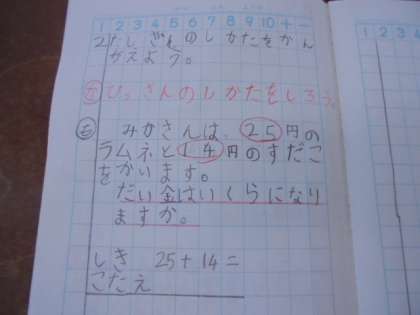 1 2 3 4 5 6 7 8 9 10 + -
2 たしざんのしかたをかん
がえよう。
め ひっさんのしかたをしろう。
も みかさんは、25円の
ラムネと14円のすだこ
をかいます。
だい金はいくらになり
ますか。
しき 25+14=
こたえ
1 2 3 4